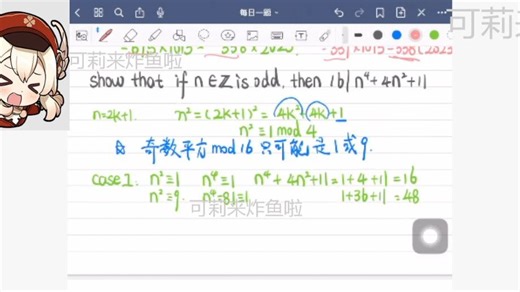 每日一題
-815×1013 - 358×2025
-351×1013-358(2025
可莉来炸鱼啦
show that if n∈ℤ is odd, then 16|n⁴+4n²+11
n=2k+1. n²=(2k+1)²=4k²+4k+1
n²≡1 mod 4
奇数平方 mod 16 只可能是 1 或 9.
case1. n²≡1 n⁴≡1 n⁴+4n²+11=1+4+11=16
n²=9. n⁴=81=1 1+36+11=48
可莉来炸鱼啦